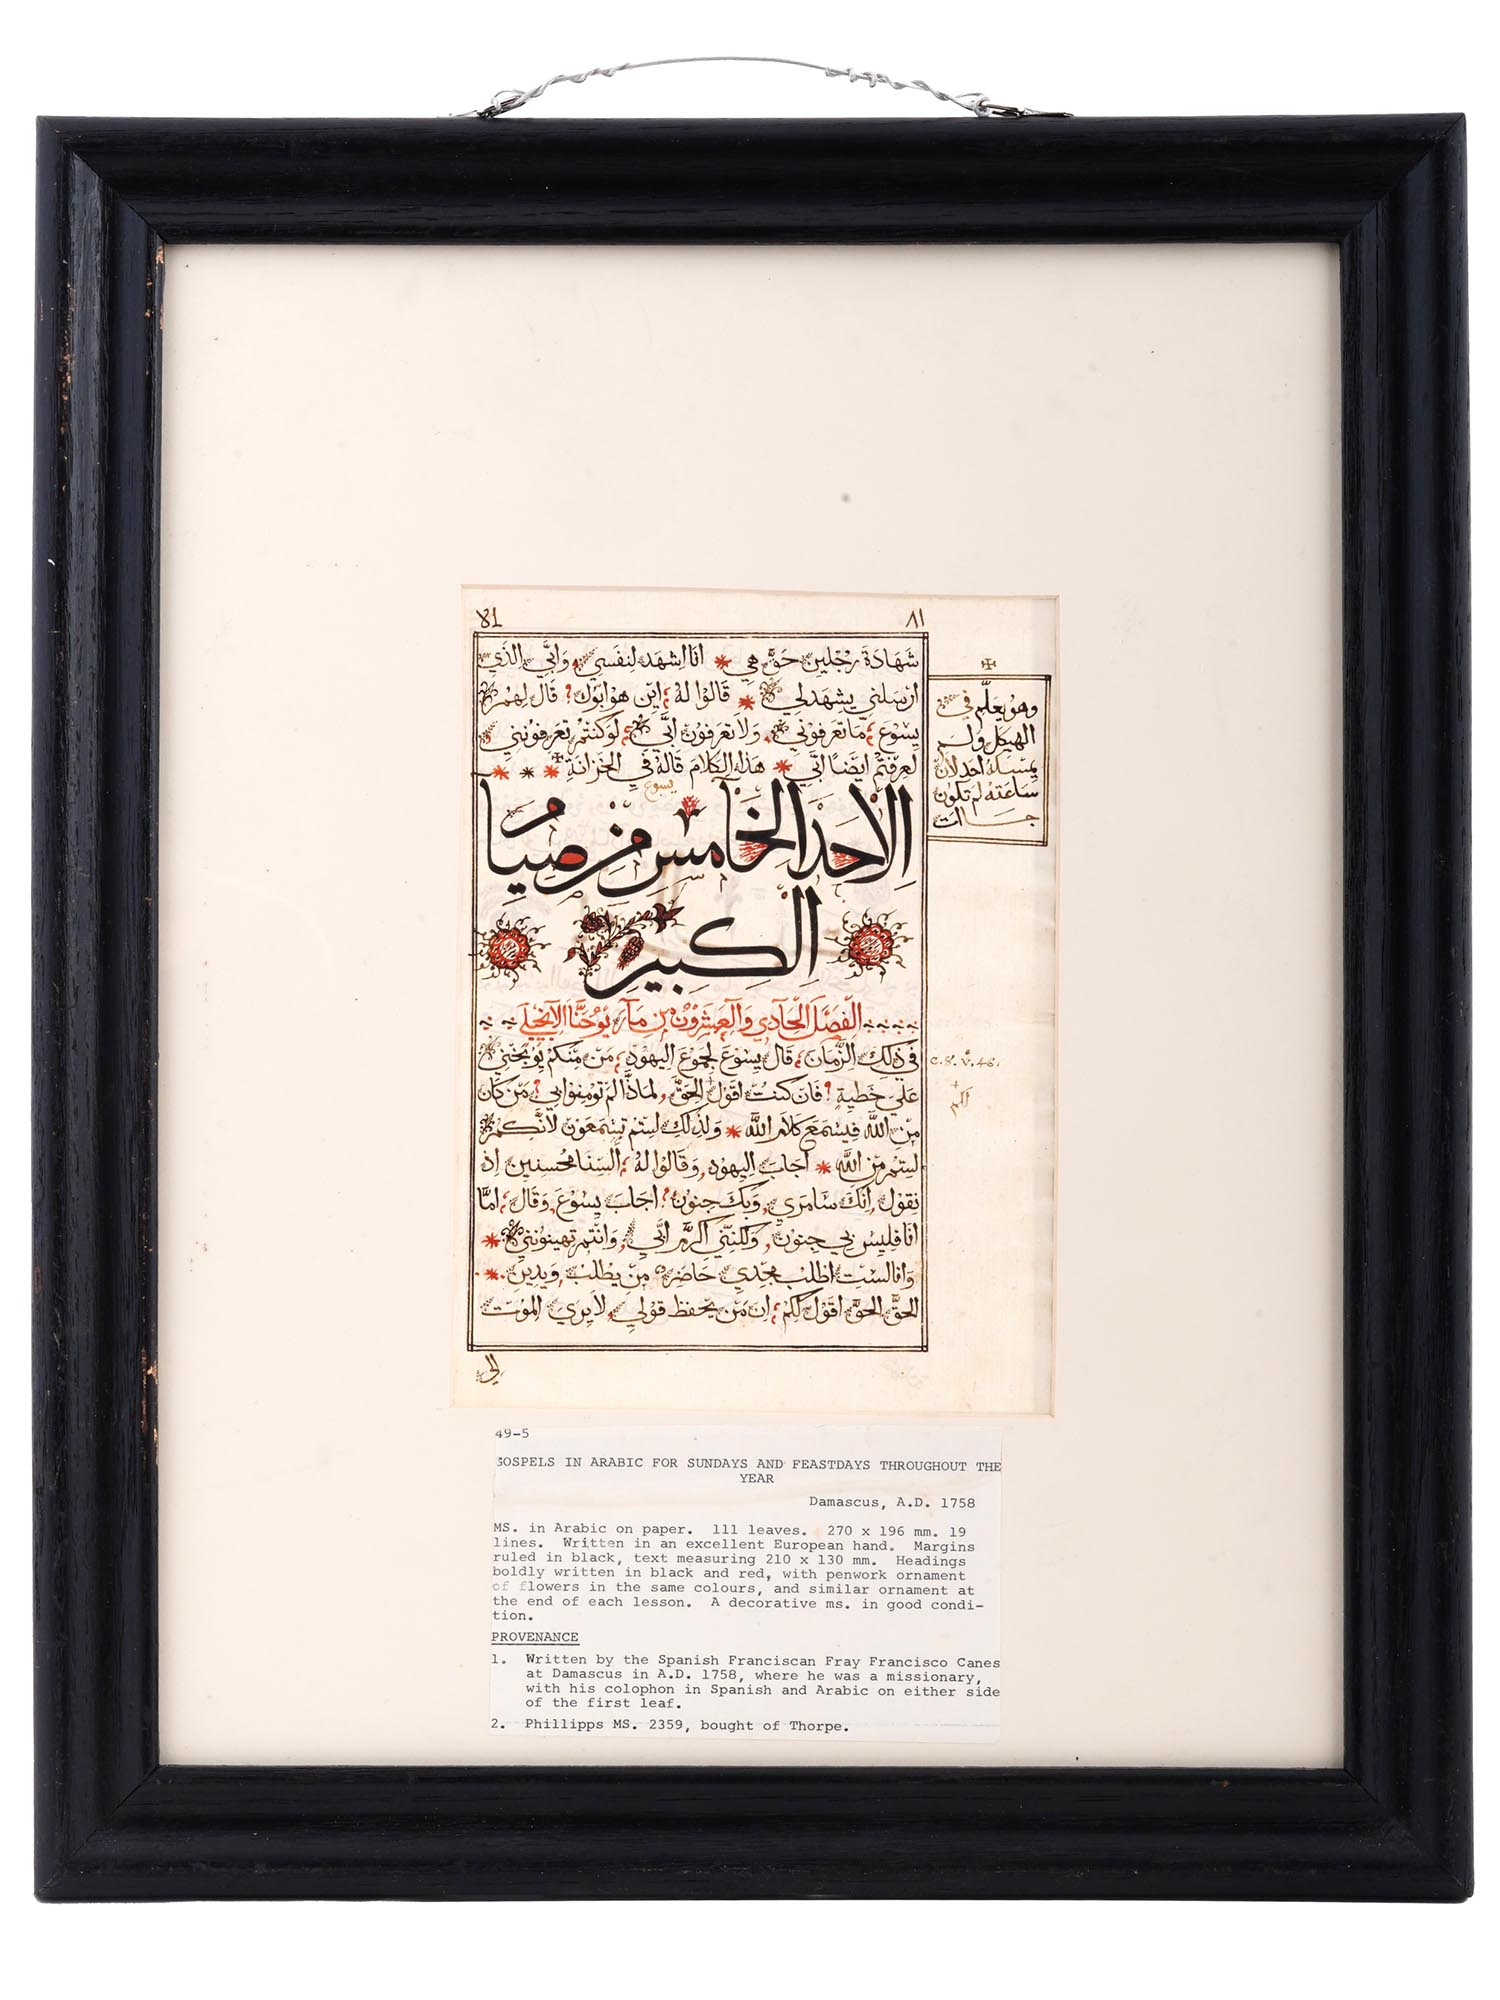 81 ٨١
شَهَادَة رَجُلين حَقّ هي * انا اشهَد لِنَفسِي، وَابي الذَي
ارسَلني يشهَد لي * قالوا لهُ؛ اين هو ابوُك؟ قال لهمُ
يسَوع؛ مَا تعرفوني، ولا تعرَفون ابي؛ لو كنتم تعرفُونني
لعرفتم ايضًا ابي * هذا الكلامَ قالهُ في الخَزانةِ * * *
يسوع
وهو يعَلّم في
الهيكل ولم
يمسكهُ احد لانّ
ساعتهُ لم تكون
جاات
الاحد الخامس من صيام
الكبير
الفصَل الحَادي وَالعشرُون من مَار يوُحنَّا الانجيلي
في ذلك الزَّمان؛ قال يسَوع لجموع اليهود؛ مَن منكم يوبخني
c. 8. v. 46.
عَلي خَطية؟ فان كنت اقول الحَقّ، لماذا لم تومنوا بي؟ مَن كان
لكم
من الله فيسمَع كلام الله * ولذلك لستم تسَمعَون لانّكم
لستم مّن الله * اجَاب اليهود، وَقالوا لهُ؛ السَنا محُسنين اذ
نقول، انك سَامري، وبك جنون؟ اجاب يسَوع وَقال؛ امَّا
انا فليس بي جنون، ولكنّني اكرّم ابي، وانتم تهينونني *
وانا لست اطلب مجدي حَاضر مَن يطلب، ويدين *
الحَقّ الحَقّ اقول لكم؛ ان مَن يحفظ قولي، لا يرَي الموت
الي
49-5
GOSPELS IN ARABIC FOR SUNDAYS AND FEASTDAYS THROUGHOUT THE
YEAR
Damascus, A.D. 1758
MS. in Arabic on paper. 111 leaves. 270 x 196 mm. 19
lines. Written in an excellent European hand. Margins
ruled in black, text measuring 210 x 130 mm. Headings
boldly written in black and red, with penwork ornament
of flowers in the same colours, and similar ornament at
the end of each lesson. A decorative ms. in good condi-
tion.
PROVENANCE
1. Written by the Spanish Franciscan Fray Francisco Canes
at Damascus in A.D. 1758, where he was a missionary,
with his colophon in Spanish and Arabic on either side
of the first leaf.
2. Phillipps MS. 2359, bought of Thorpe.